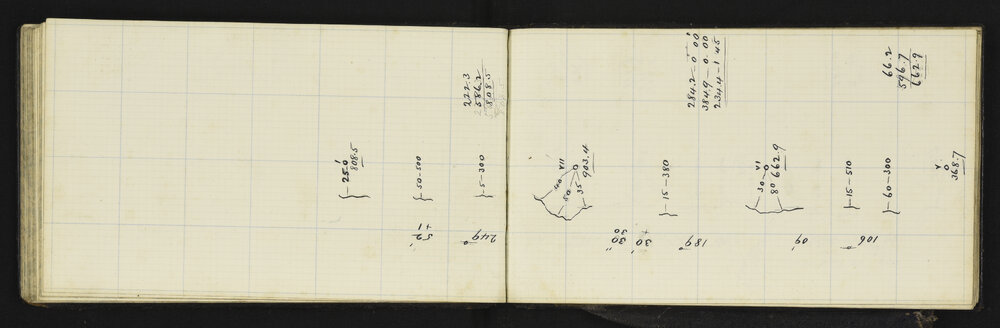 222.3
586.2
808.5
25-0
808.5
50-500
5-300
52'
+1
249°
VII
40
50
35
903.4
284.2-0 00
384.9-0.00
234.4-1.45
15-380
30' 30"
+ 30
189°
VI
30
80 662.9
15-510
60-300
66.2
596.7
662.9
V
368.7
09'
106°